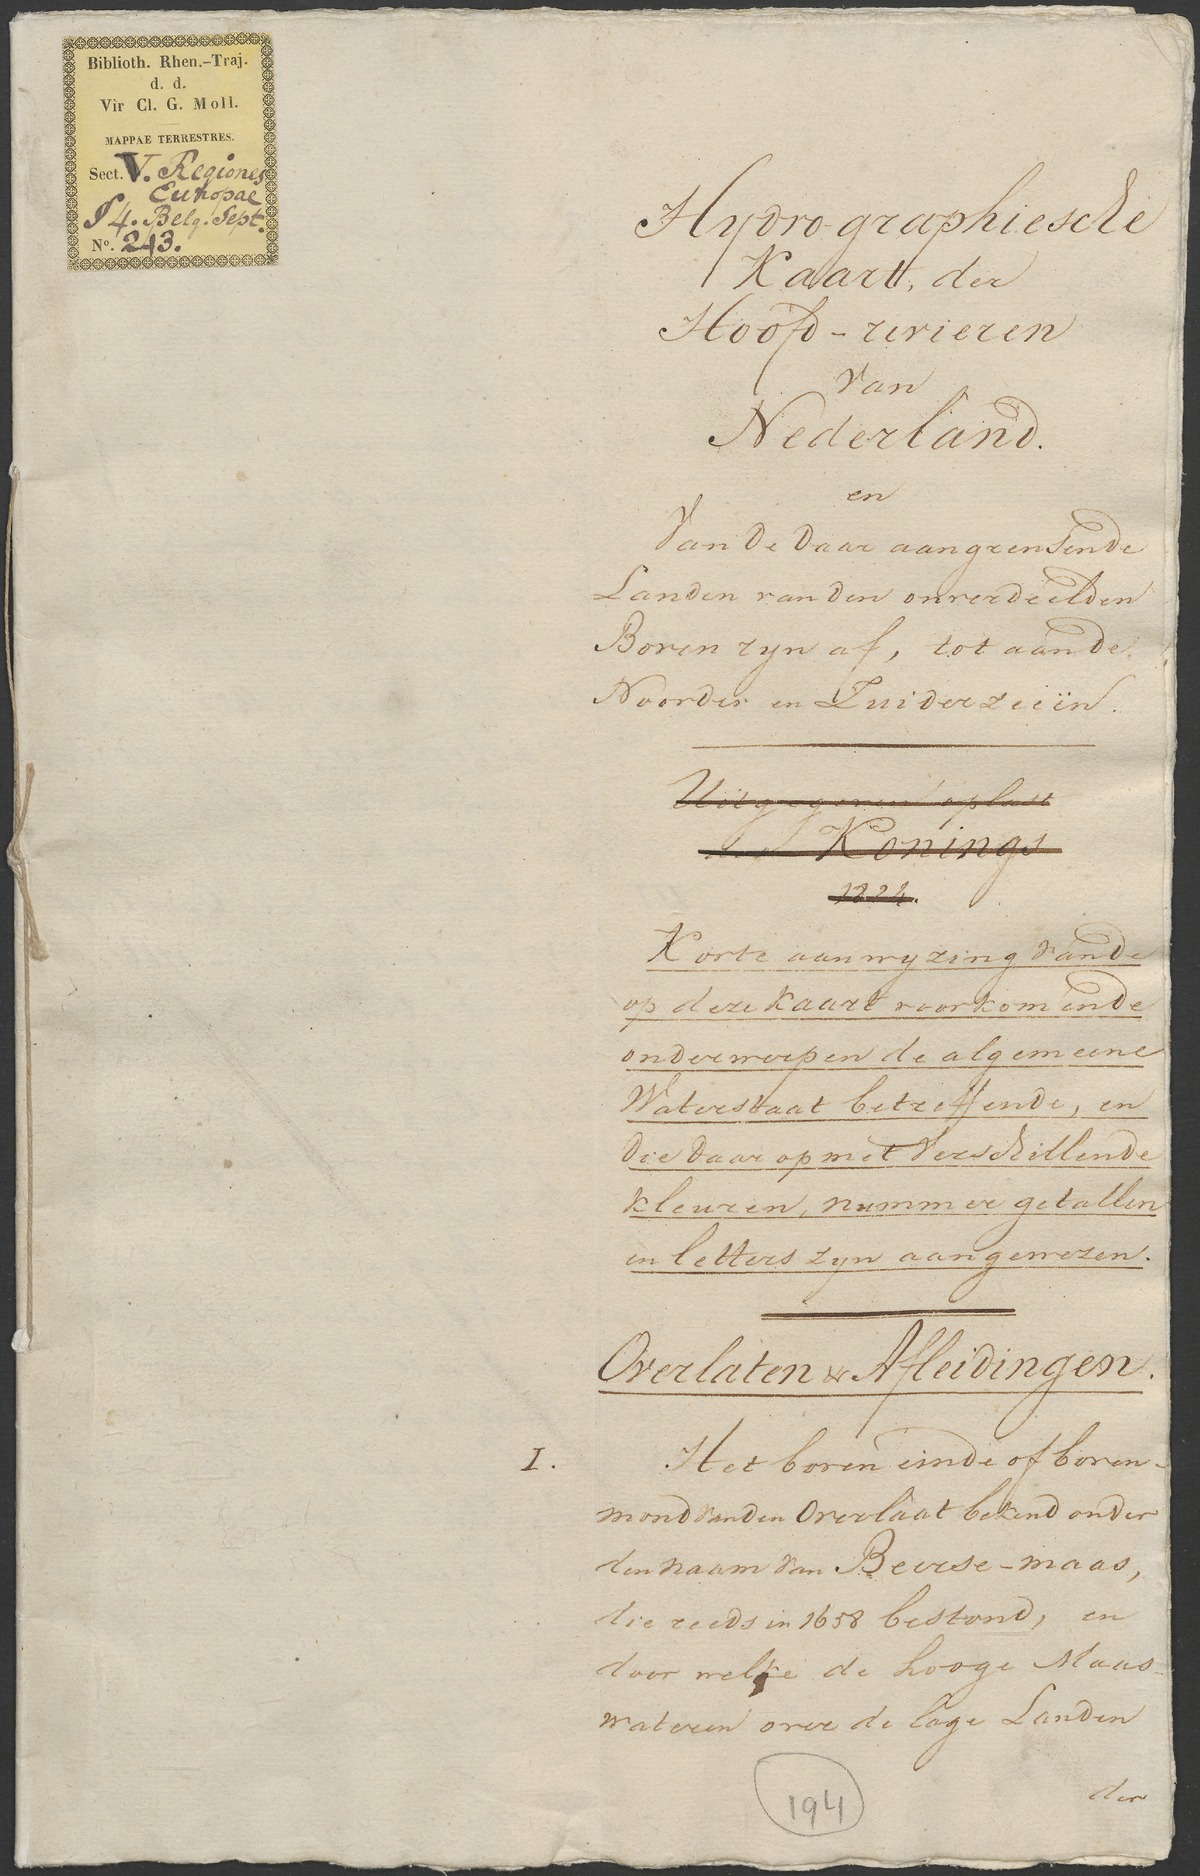 Biblioth. Rhen.-Traj.
d. d.
Vir Cl. G. Moll.
MAPPAE TERRESTRES.
Sect. V. Regiones
Europae
§ 4. Belg. Sept.
No. 243.
Hydro-graphiesche
Kaart, der
Hoofd-rivieren
van
Nederland.
en
Van de daar aangrensende
Landen van den onverdeelden
Boven ryn af, tot aan de
Noorder en Zuiderzeeën.
Uitgegeven op last
des Konings
1824.
Korte aanwyzing van de
op deze kaart voorkomende
onderwerpen de algemeene
Waterstaat betreffende, en
die daar op met verschillende
kleuren, nummer getallen
en letters zyn aangewezen.
Overlaten & Afleidingen.
I. Het boven einde of boven-
mond van den Overlaat bekend onder
den naam van Beerse-maas,
die reeds in 1658 bestond, en
door welke de hooge Maas-
wateren over de lage Landen
der
194